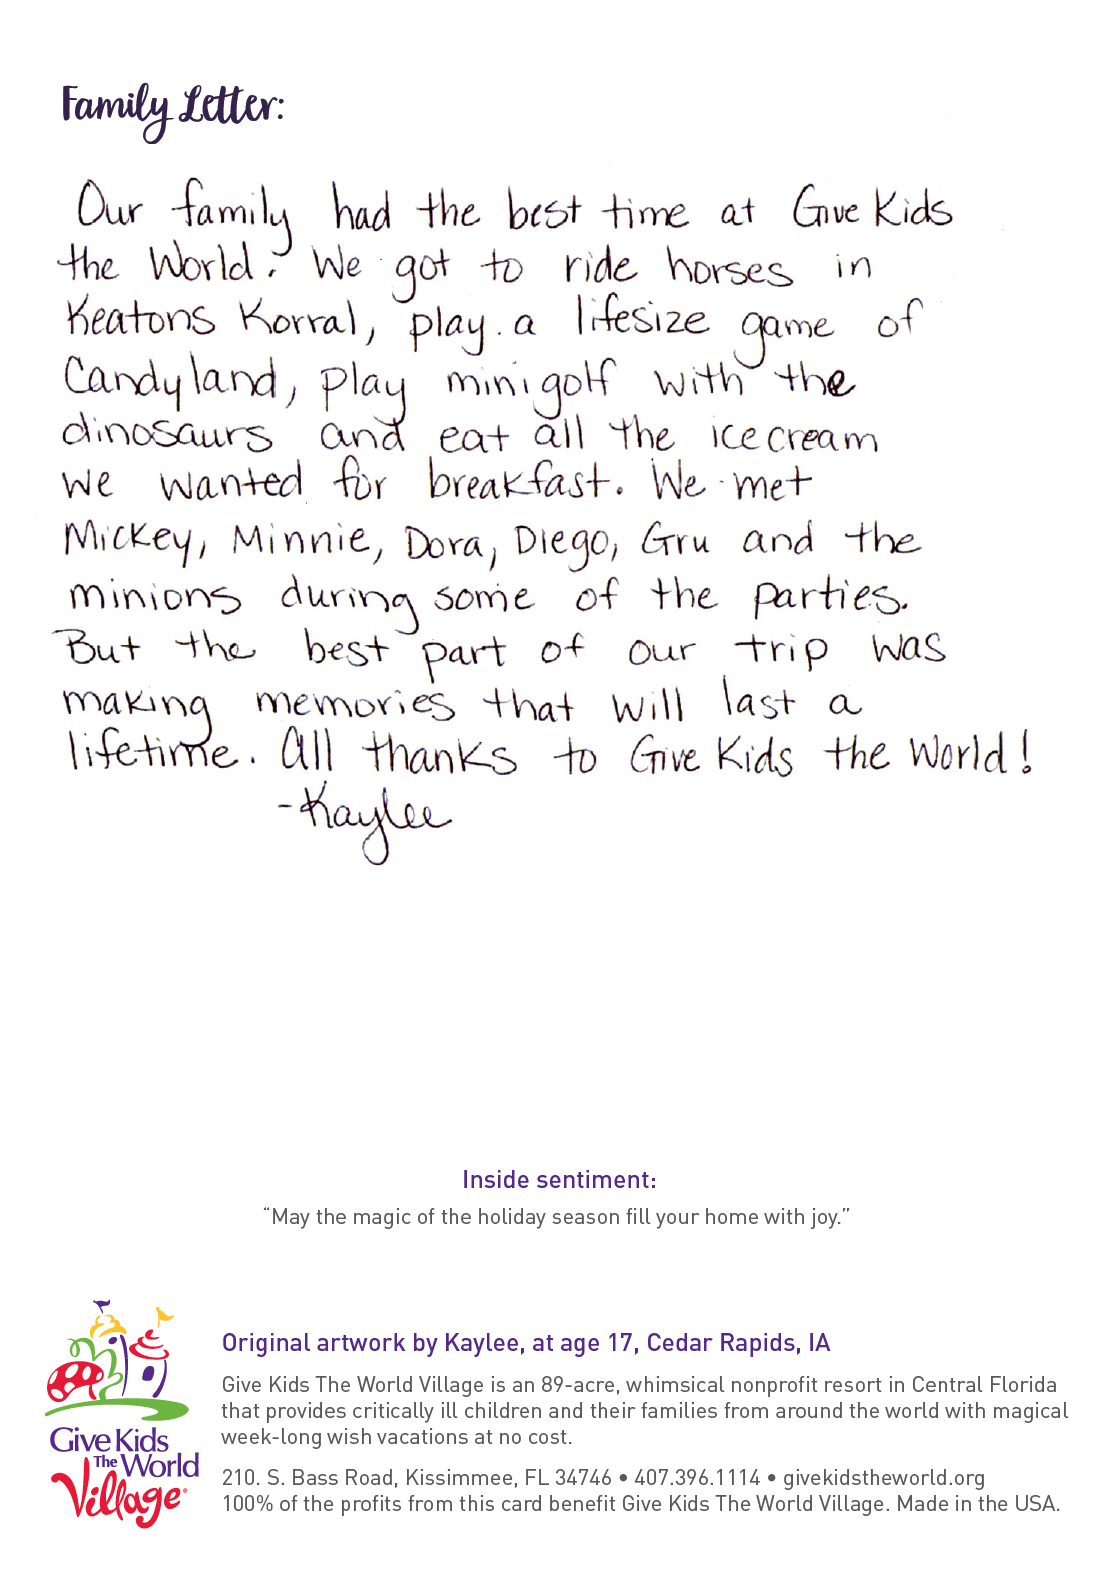 Family Letter:
Our family had the best time at Give Kids
the World. We got to ride horses in
Keatons Korral, play a lifesize game of
Candyland, play minigolf with the
dinosaurs and eat all the icecream
we wanted for breakfast. We met
Mickey, Minnie, Dora, Diego, Gru and the
minions during some of the parties.
But the best part of our trip was
making memories that will last a
lifetime. All thanks to Give Kids the World!
-Kaylee
Inside sentiment:
“May the magic of the holiday season fill your home with joy.”
Original artwork by Kaylee, at age 17, Cedar Rapids, IA
Give Kids The World Village is an 89-acre, whimsical nonprofit resort in Central Florida
that provides critically ill children and their families from around the world with magical
week-long wish vacations at no cost.
210. S. Bass Road, Kissimmee, FL 34746 • 407.396.1114 • givekidstheworld.org
100% of the profits from this card benefit Give Kids The World Village. Made in the USA.
Give Kids
The World
Village®